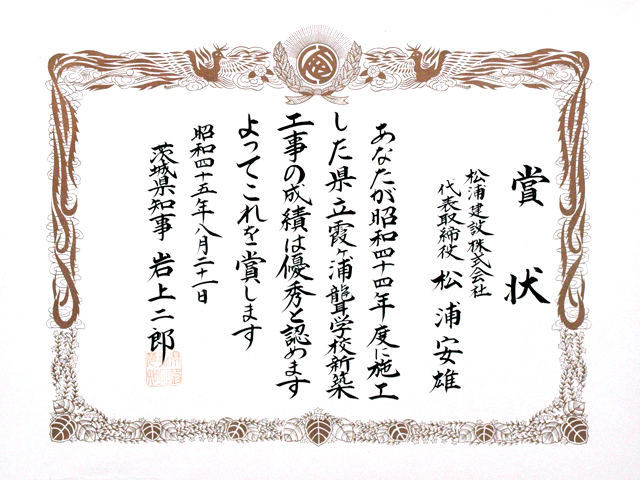 賞状
松浦建設株式会社
代表取締役 松浦安雄
あなたが昭和四十四年度に施工
した県立霞ヶ浦聾学校新築
工事の成績は優秀と認めます
よってこれを賞します
昭和四十五年八月二十一日
茨城県知事 岩上二郎